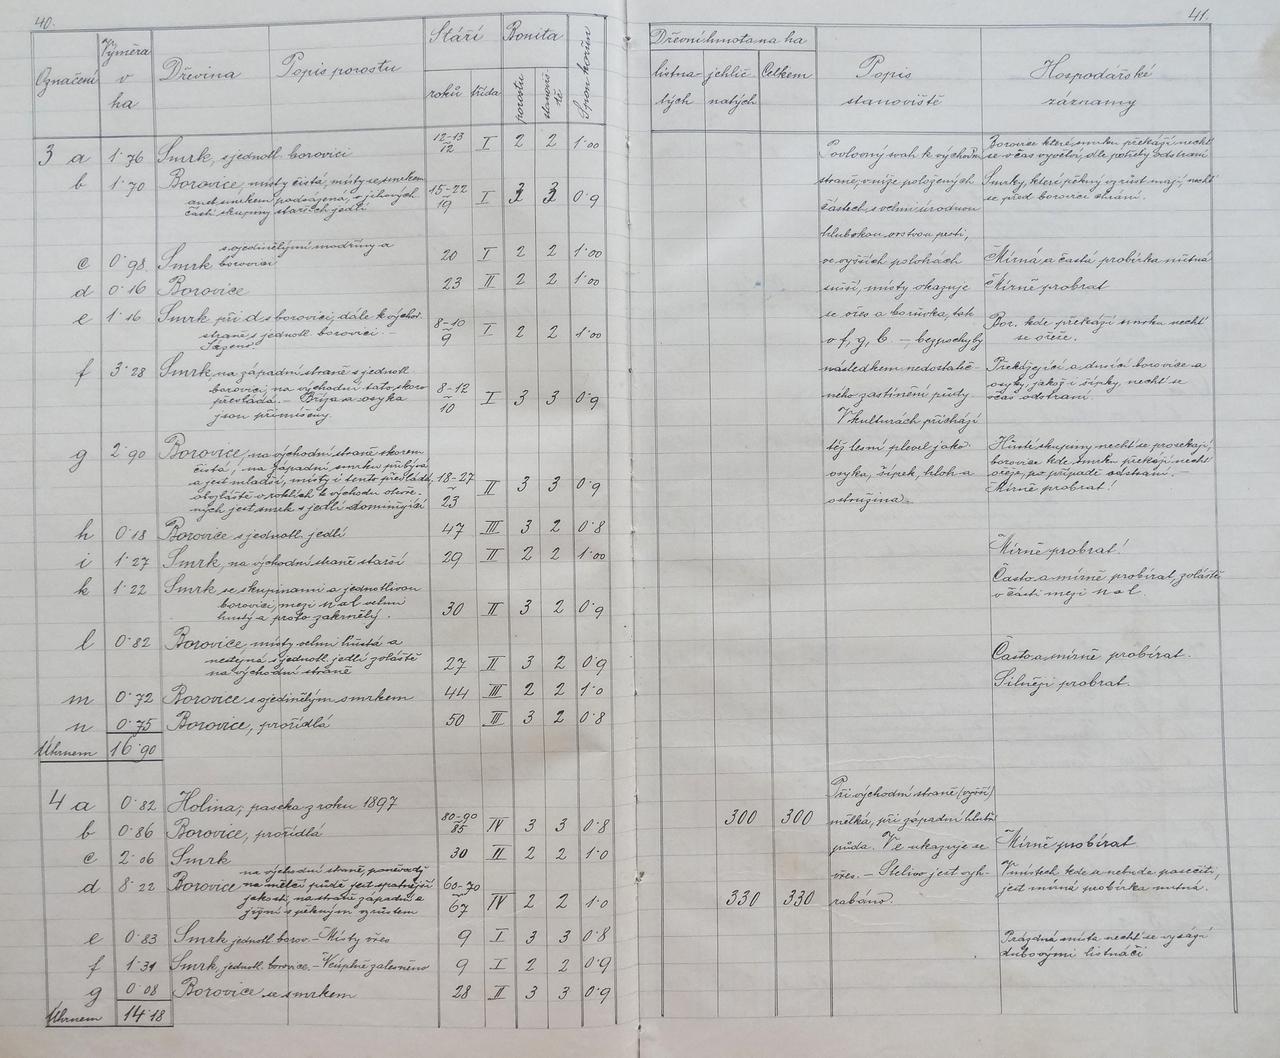 40.
Označení
Výměra v ha
Dřevina
Popis porostu
Stáří
roků
třída
Bonita
porostu
stanoviště
Sponkorun
3 a 1·76 Smrk, s jednotl. borovicí 12-13 12 I 2 2 1·00
b 1·70 Borovice, místy čistá, místy se smrkem 15-22 19 I 3 3 0·9
anet. smrkem podsázená, v jihových
části skupiny starších jedlí
s ojedinělými modříny a
c 0·98 Smrk borovicí 20 I 2 2 1·00
d 0·16 Borovice 23 II 2 2 1·00
e 1·16 Smrk při d s borovicí, dále k východ. 8-10 9 I 2 2 1·00
straně s jednotl. borovicí. —
Sázeno
f 3·28 Smrk na západní straně s jednotl.
borovicí, na východní tato skoro 8-12 10 I 3 3 0·9
převládá. — Bříza a osyka
jsou přimíšeny.
g 2·90 Borovice, na východní straně skorem
čistá; na západní smrku přibývá
a jest mladší, místy i tento převládá, 18-27 23 II 3 3 0·9
obzvláště v roklích k východu otevře-
ných jest smrk s jedlí dominující
h 0·18 Borovice s jednotl. jedlí 47 III 3 2 0·8
i 1·27 Smrk, na východní straně starší 29 II 2 2 1·00
k 1·22 Smrk se skupinami a jednotlivou
borovicí, mezi n a l velmi 30 II 3 2 0·9
hustý a proto zakrnělý.
l 0·82 Borovice, místy velmi hustá a
nestejná s jednotl. jedlí zvláště 27 II 3 2 0·9
na východní straně
m 0·72 Borovice s ojedinělým smrkem 44 III 2 2 1·0
n 0·75 Borovice, prořídlá 50 III 3 2 0·8
Úhrnem 16·90
4 a 0·82 Holina; paseka z roku 1897
b 0·86 Borovice, prořídlá 80-90 85 IV 3 3 0·8
c 2·06 Smrk 30 II 2 2 1·0
na východní straně, poněvadž
d 8·22 Borovice na mělčí půdě jest špatnější 60-70 67 IV 2 2 1·0
jakosti, na straně západní a
jižní s pěkným vzrůstem
e 0·83 Smrk jednotl. borov. — Místy vřes 9 I 3 3 0·8
f 1·31 Smrk, jednotl. borovice. — Neúplně zalesněno 9 I 2 2 0·9
g 0·08 Borovice se smrkem 28 II 3 3 0·9
Úhrnem 14·18
41.
Dřevní hmota na ha
listna-
tých
jehlič
natých
Celkem
Popis
stanoviště
Hospodářské
záznamy
Povlovný svah k východní
straně, v níže položených
částech s velmi úrodnou
hlubokou vrstvou proti,
ve vyšších polohách
sušší, místy okazuje
se vřes a borůvka, tak
v f, g, b. — bezpochyby
následkem nedostateč-
ného zastínění půdy.
V kulturách přichází
též lesní plevel jako
osyka, šípek, hloh a
ostružina.
Borovice které smrku překáží nechť
se včas vyvětví, dle potřeby odstraní
Smrky, které pěkný vzrůst mají, nechť
se před borovicí chrání.
Mírná a častá probírka nutná
Mírně probrat
Bor. kde překáží smrku nechť
se ořeže.
Překážející a dusící borovice a
osyky, jakož i šípky, nechť se
včas odstraní.
Husté skupiny nechť se prosekají,
borovice kde smrku překáží nechť
ořeže, po případě odstraní. —
Mírně probrat!
Mírně probrat!
Často a mírně probírat, zvláště
v části mezi n a l.
Často a mírně probírat.
Silněji probrat.
Při východní straně (vyšší)
300 300 mělká, při západní hlubší
půda. V e ukazuje se
vřes. — Stelivo jest vyh-
330 330 rabáno.
Mírně probírat
V místech kde a nebude pasečiti,
jest mírná probírka nutná.
Prázdná místa nechť se vysází
dubovými listnáči